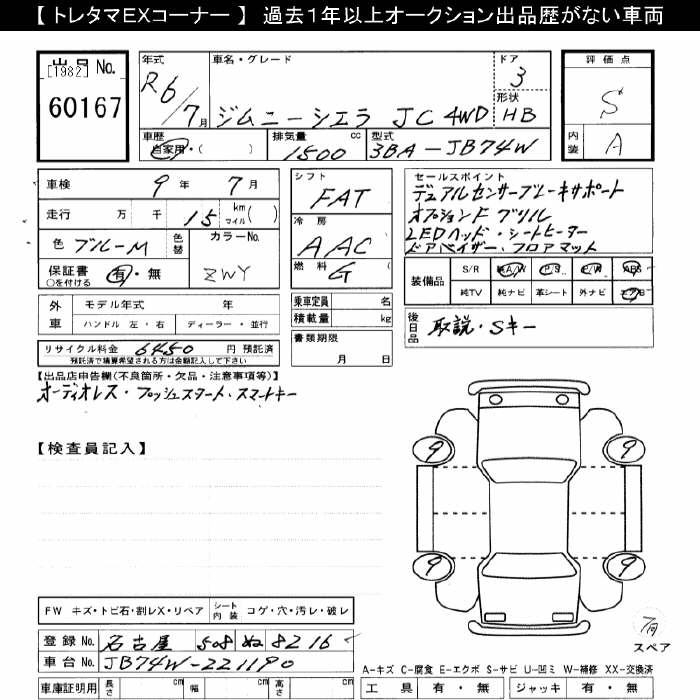 【 トレタマEXコーナー 】 過去1年以上オークション出品歴がない車両
出品 No.
[1982]
60167
年式 車名・グレード ドア
R6/7月 ジムニーシエラ JC 4WD 3
形状
HB
車歴 排気量 cc 型式
自家用・( ) 1500 3BA-JB74W
評価点
S
内装 A
車検 9年 7月
走行 万 千 15 km マイル( )
色 ブルーM 色替 カラーNo. ZWY
保証書 有・無
○を付ける
外車 モデル年式 年
ハンドル 左・右 ディーラー・並行
リサイクル料金 6450 円 預託済
預託済で精算希望される方は金額記入して下さい
シフト
FAT
冷房
AAC
燃料
G
乗車定員 名
積載量 kg
書類期限
月 日
セールスポイント
デュアルセンサーブレーキサポート
オプションF グリル
LEDヘッド・シートヒーター
ドアバイザー・フロアマット
装備品 S/R 純A/W P/S P/W ABS
純TV 純ナビ 革シート 外ナビ エアB
後日品 取説・Sキー
【出品店申告欄(不良箇所・欠品・注意事項等)】
オーディオレス・プッシュスタート・スマートキー
【検査員記入】
9 9
9 9
FW キズ・トビ石・割レX・リペア シート内装 コゲ・穴・汚レ・破レ
登録No. 名古屋 508 ぬ 8216
車台No. JB74W-221190
スペア
A-キズ C-腐食 E-エクボ S-サビ U-凹ミ W-補修 XX-交換済
車庫証明用 長さ cm 幅 cm 高さ cm
工具 有・無 ジャッキ 有・無